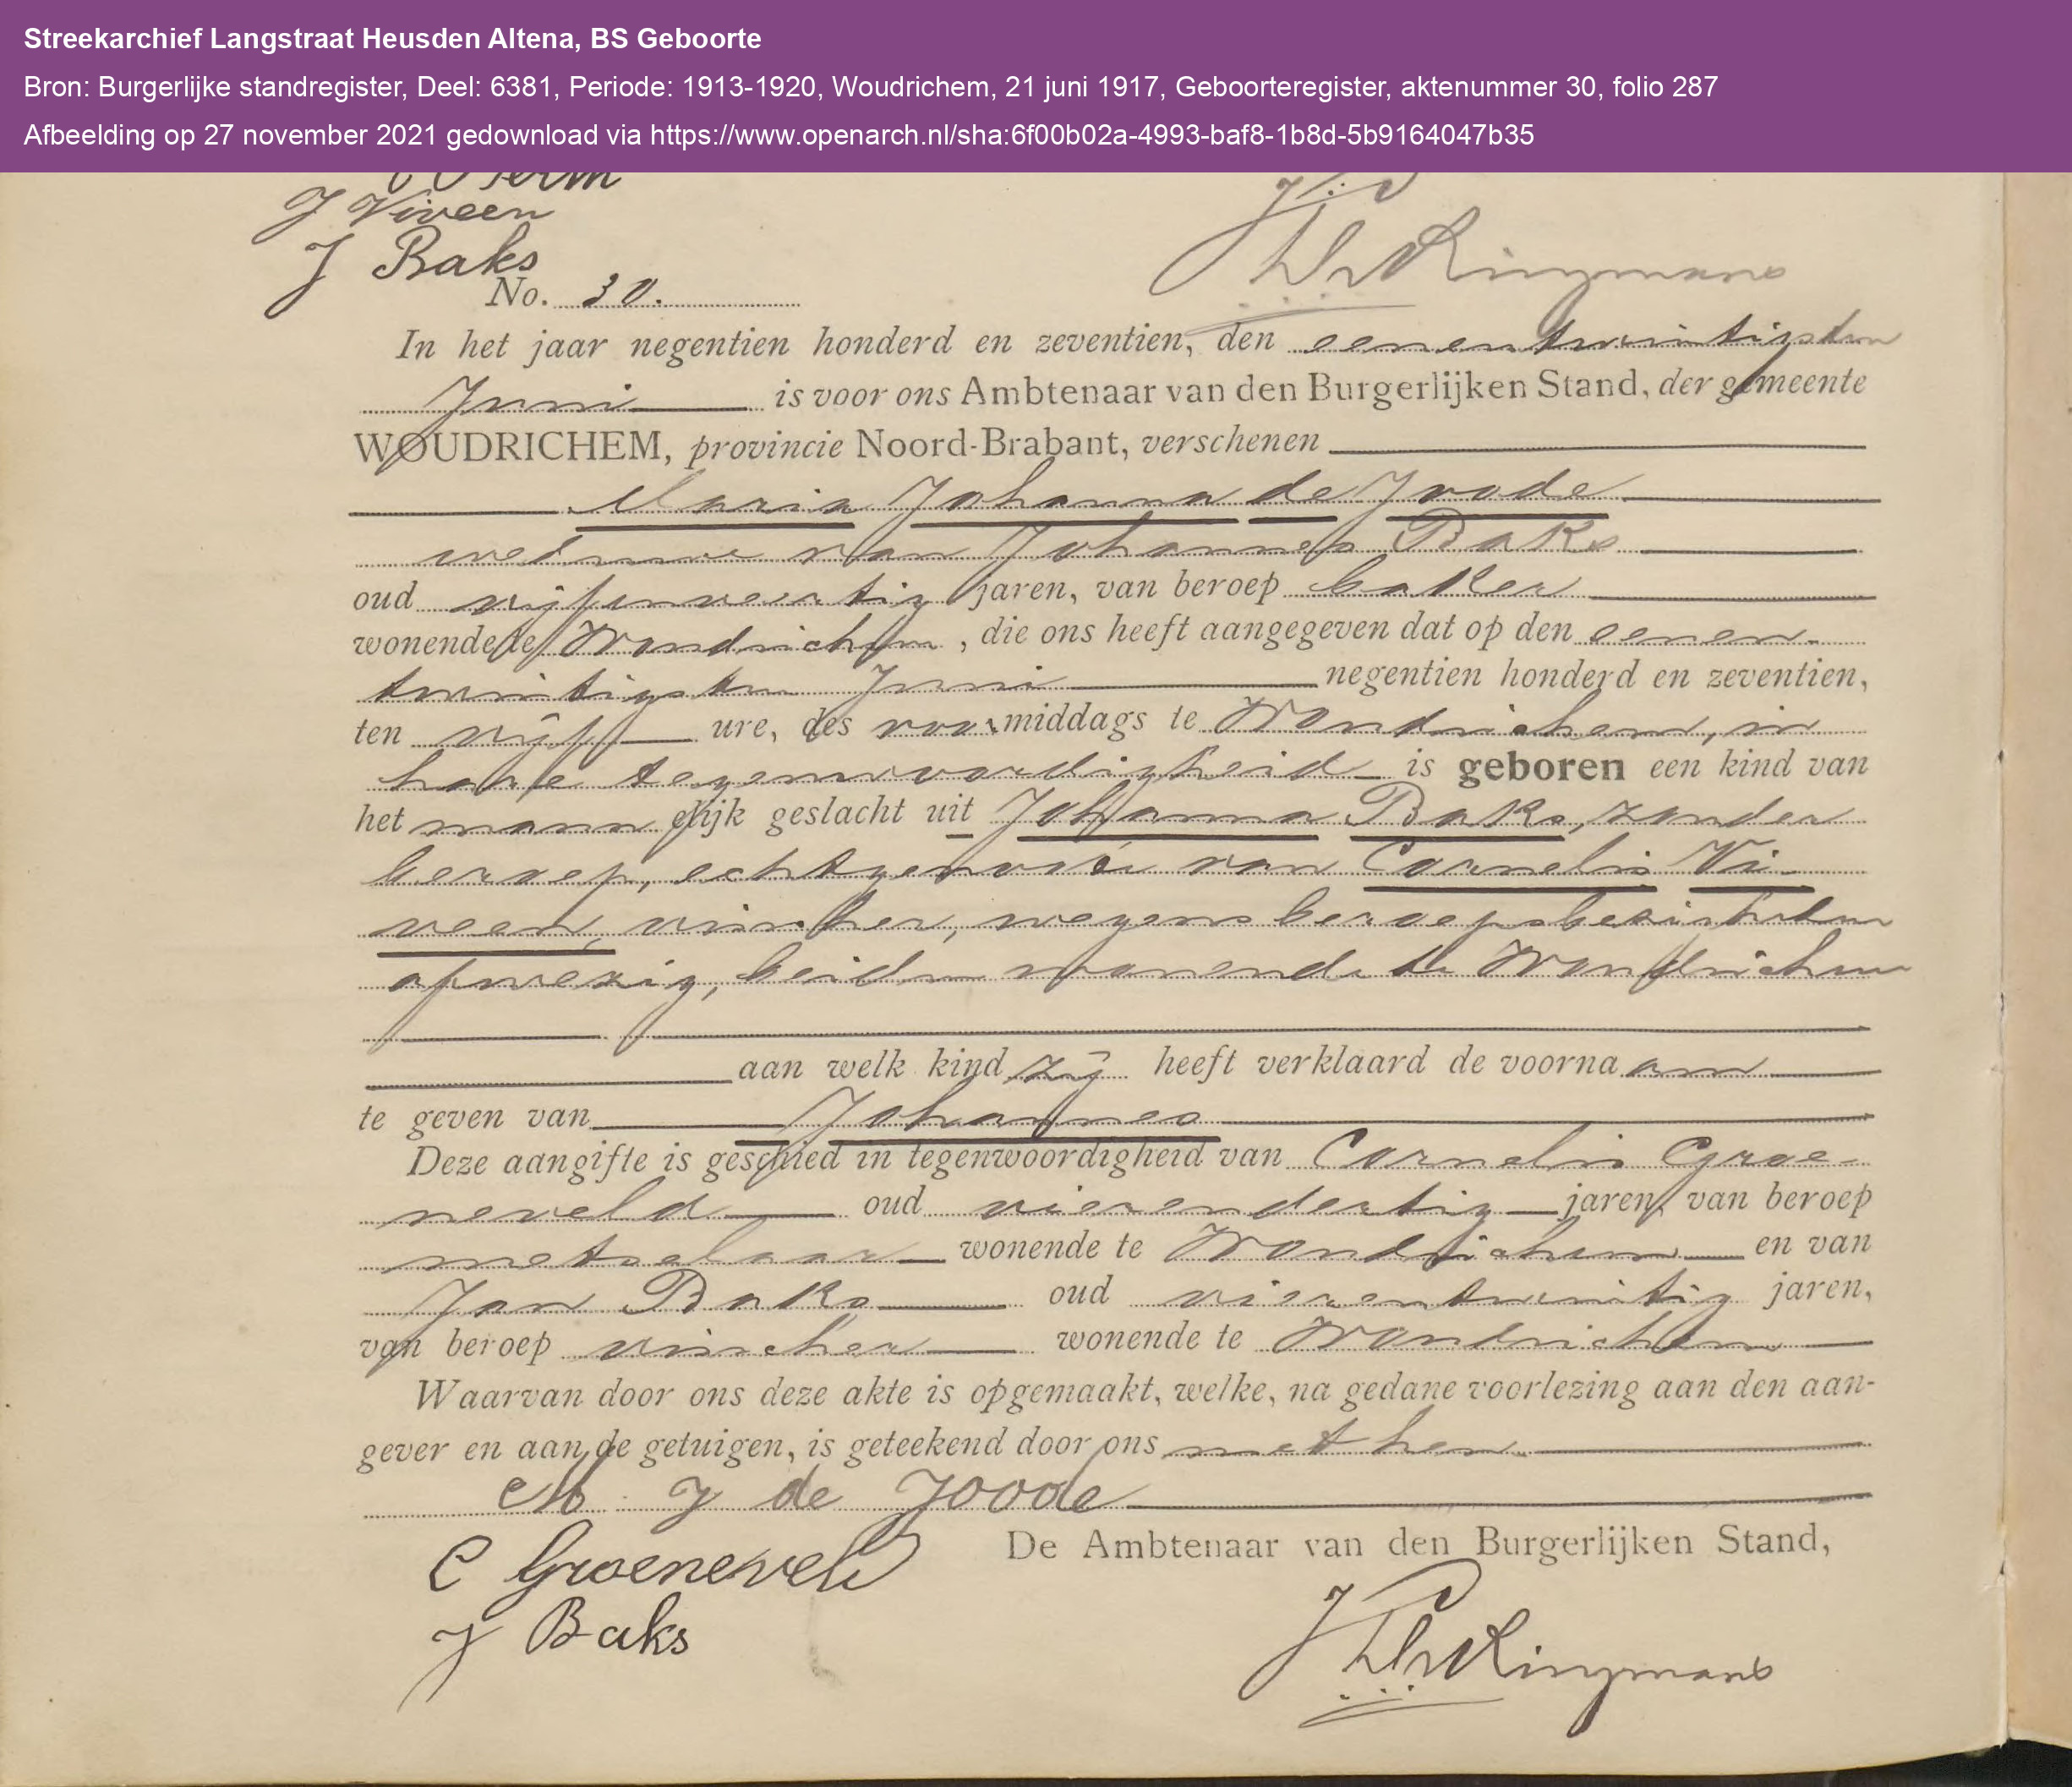 Streekarchief Langstraat Heusden Altena, BS Geboorte
Bron: Burgerlijke standregister, Deel: 6381, Periode: 1913-1920, Woudrichem, 21 juni 1917, Geboorteregister, aktenummer 30, folio 287
Afbeelding op 27 november 2021 gedownload via https://www.openarch.nl/sha:6f00b02a-4993-baf8-1b8d-5b9164047b35
J Viveen
J Baks
No. 30.
In het jaar negentien honderd en zeventien, den eenentwintigsten
Juni is voor ons Ambtenaar van den Burgerlijken Stand, der gemeente
WOUDRICHEM, provincie Noord-Brabant, verschenen
Maria Johanna de Joode
weduwe van Johannes Baks
oud vijfenveertig jaren, van beroep baker
wonende te Woudrichem, die ons heeft aangegeven dat op den eenen-
twintigsten Juni negentien honderd en zeventien,
ten vijf ure, des voormiddags te Woudrichem, in
hare tegenwoordigheid is geboren een kind van
het mannelijk geslacht uit Johanna Baks, zonder
beroep, echtgenoote van Cornelis Vi-
veen, visscher, wegens beroepsbezigheden
afwezig, beiden wonende te Woudrichem
aan welk kind zij heeft verklaard de voornaam
te geven van Johannes
Deze aangifte is geschied in tegenwoordigheid van Cornelis Groe-
neveld oud vierendertig jaren, van beroep
metselaar wonende te Woudrichem en van
Jan Baks oud vierentwintig jaren,
van beroep visscher wonende te Woudrichem
Waarvan door ons deze akte is opgemaakt, welke, na gedane voorlezing aan den aan-
gever en aan de getuigen, is geteekend door ons met hen
M J de Joode
C Groeneveld
De Ambtenaar van den Burgerlijken Stand,
J Baks